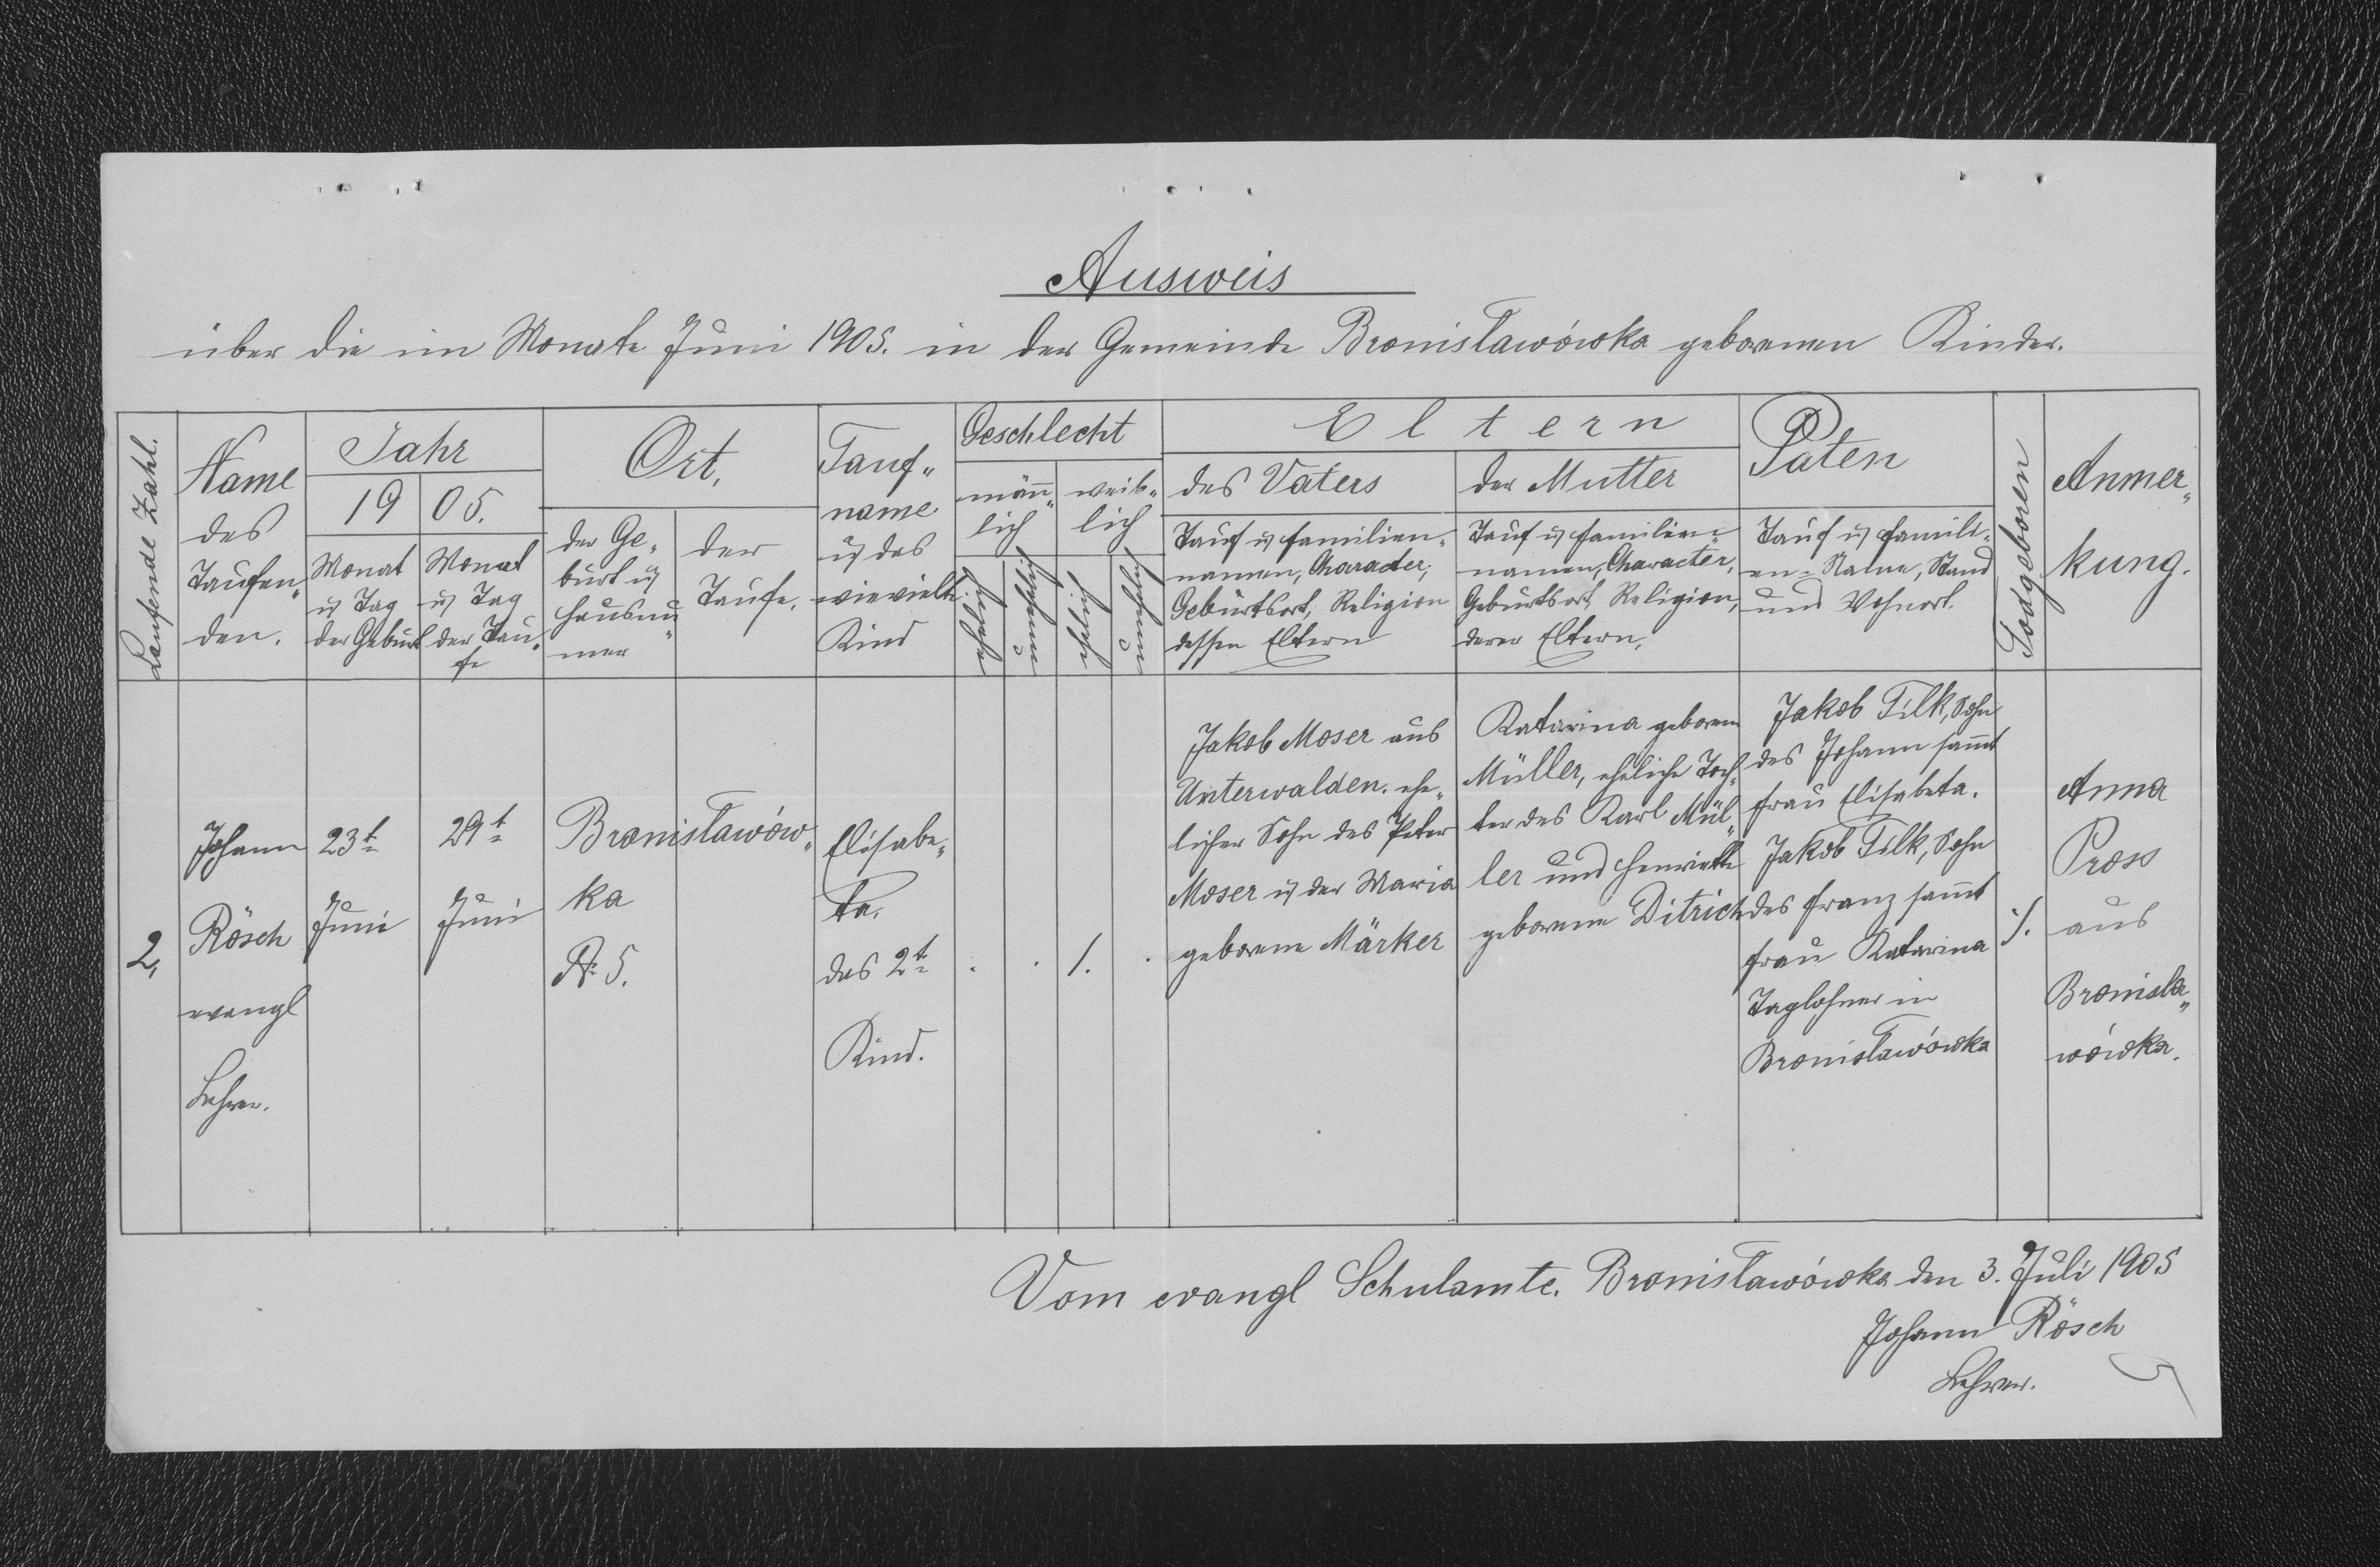 Ausweis
über die im Monate Juni 1905. in der Gemeinde Bronisławówka geborenen Kinder.
Laufende Zahl.
Name
des
Taufen„
den.
Jahr
19 05.
Monat
u Tag
der Geburt
Monat
u Tag
der Tau„
fe
Ort,
der Ge„
burt u
Hausnu„
mer
der
Taufe.
Tauf„
name
u das
wievielte
Kind
Geschlecht
männ„
lich
weib„
lich
ehelich
unehelich
ehelich
unehelich
Eltern
des Vaters
Tauf u Familien„
namen, Character,
Geburtsort, Religion
dessen Eltern
der Mutter
Tauf u Familien„
namen, Character,
Geburtsort, Religion,
deren Eltern,
Paten
Tauf u Famili„
en-Name, Stand
und Wohnort.
Todgeboren
Anmer„
kung.
2,
Johann
Rösch
evangl
Lehrer.
23t
Juni
29t
Juni
Bronisławów„
ka
№ 5.
Elisabe„
ta.
das 2t
Kind.
. . 1. .
Jakob Moser aus
Unterwalden. ehe„
licher Sohn des Peter
Moser u der Maria
geborene Märker
Katarina geborene
Müller, eheliche Toch„
ter des Karl Mül„
ler und Henriette
geborene Ditrich
Jakob Filk, Sohn
des Johann samt
Frau Elisabeta.
Jakob Filk, Sohn
des Franz samt
Frau Katarina
Taglohner in
Bronisławówka
./.
Anna
Pross
aus
Bronisla„
wówka.
Vom evangl Schulamte. Bronisławówka den 3. Juli 1905
Johann Rösch
Lehrer.